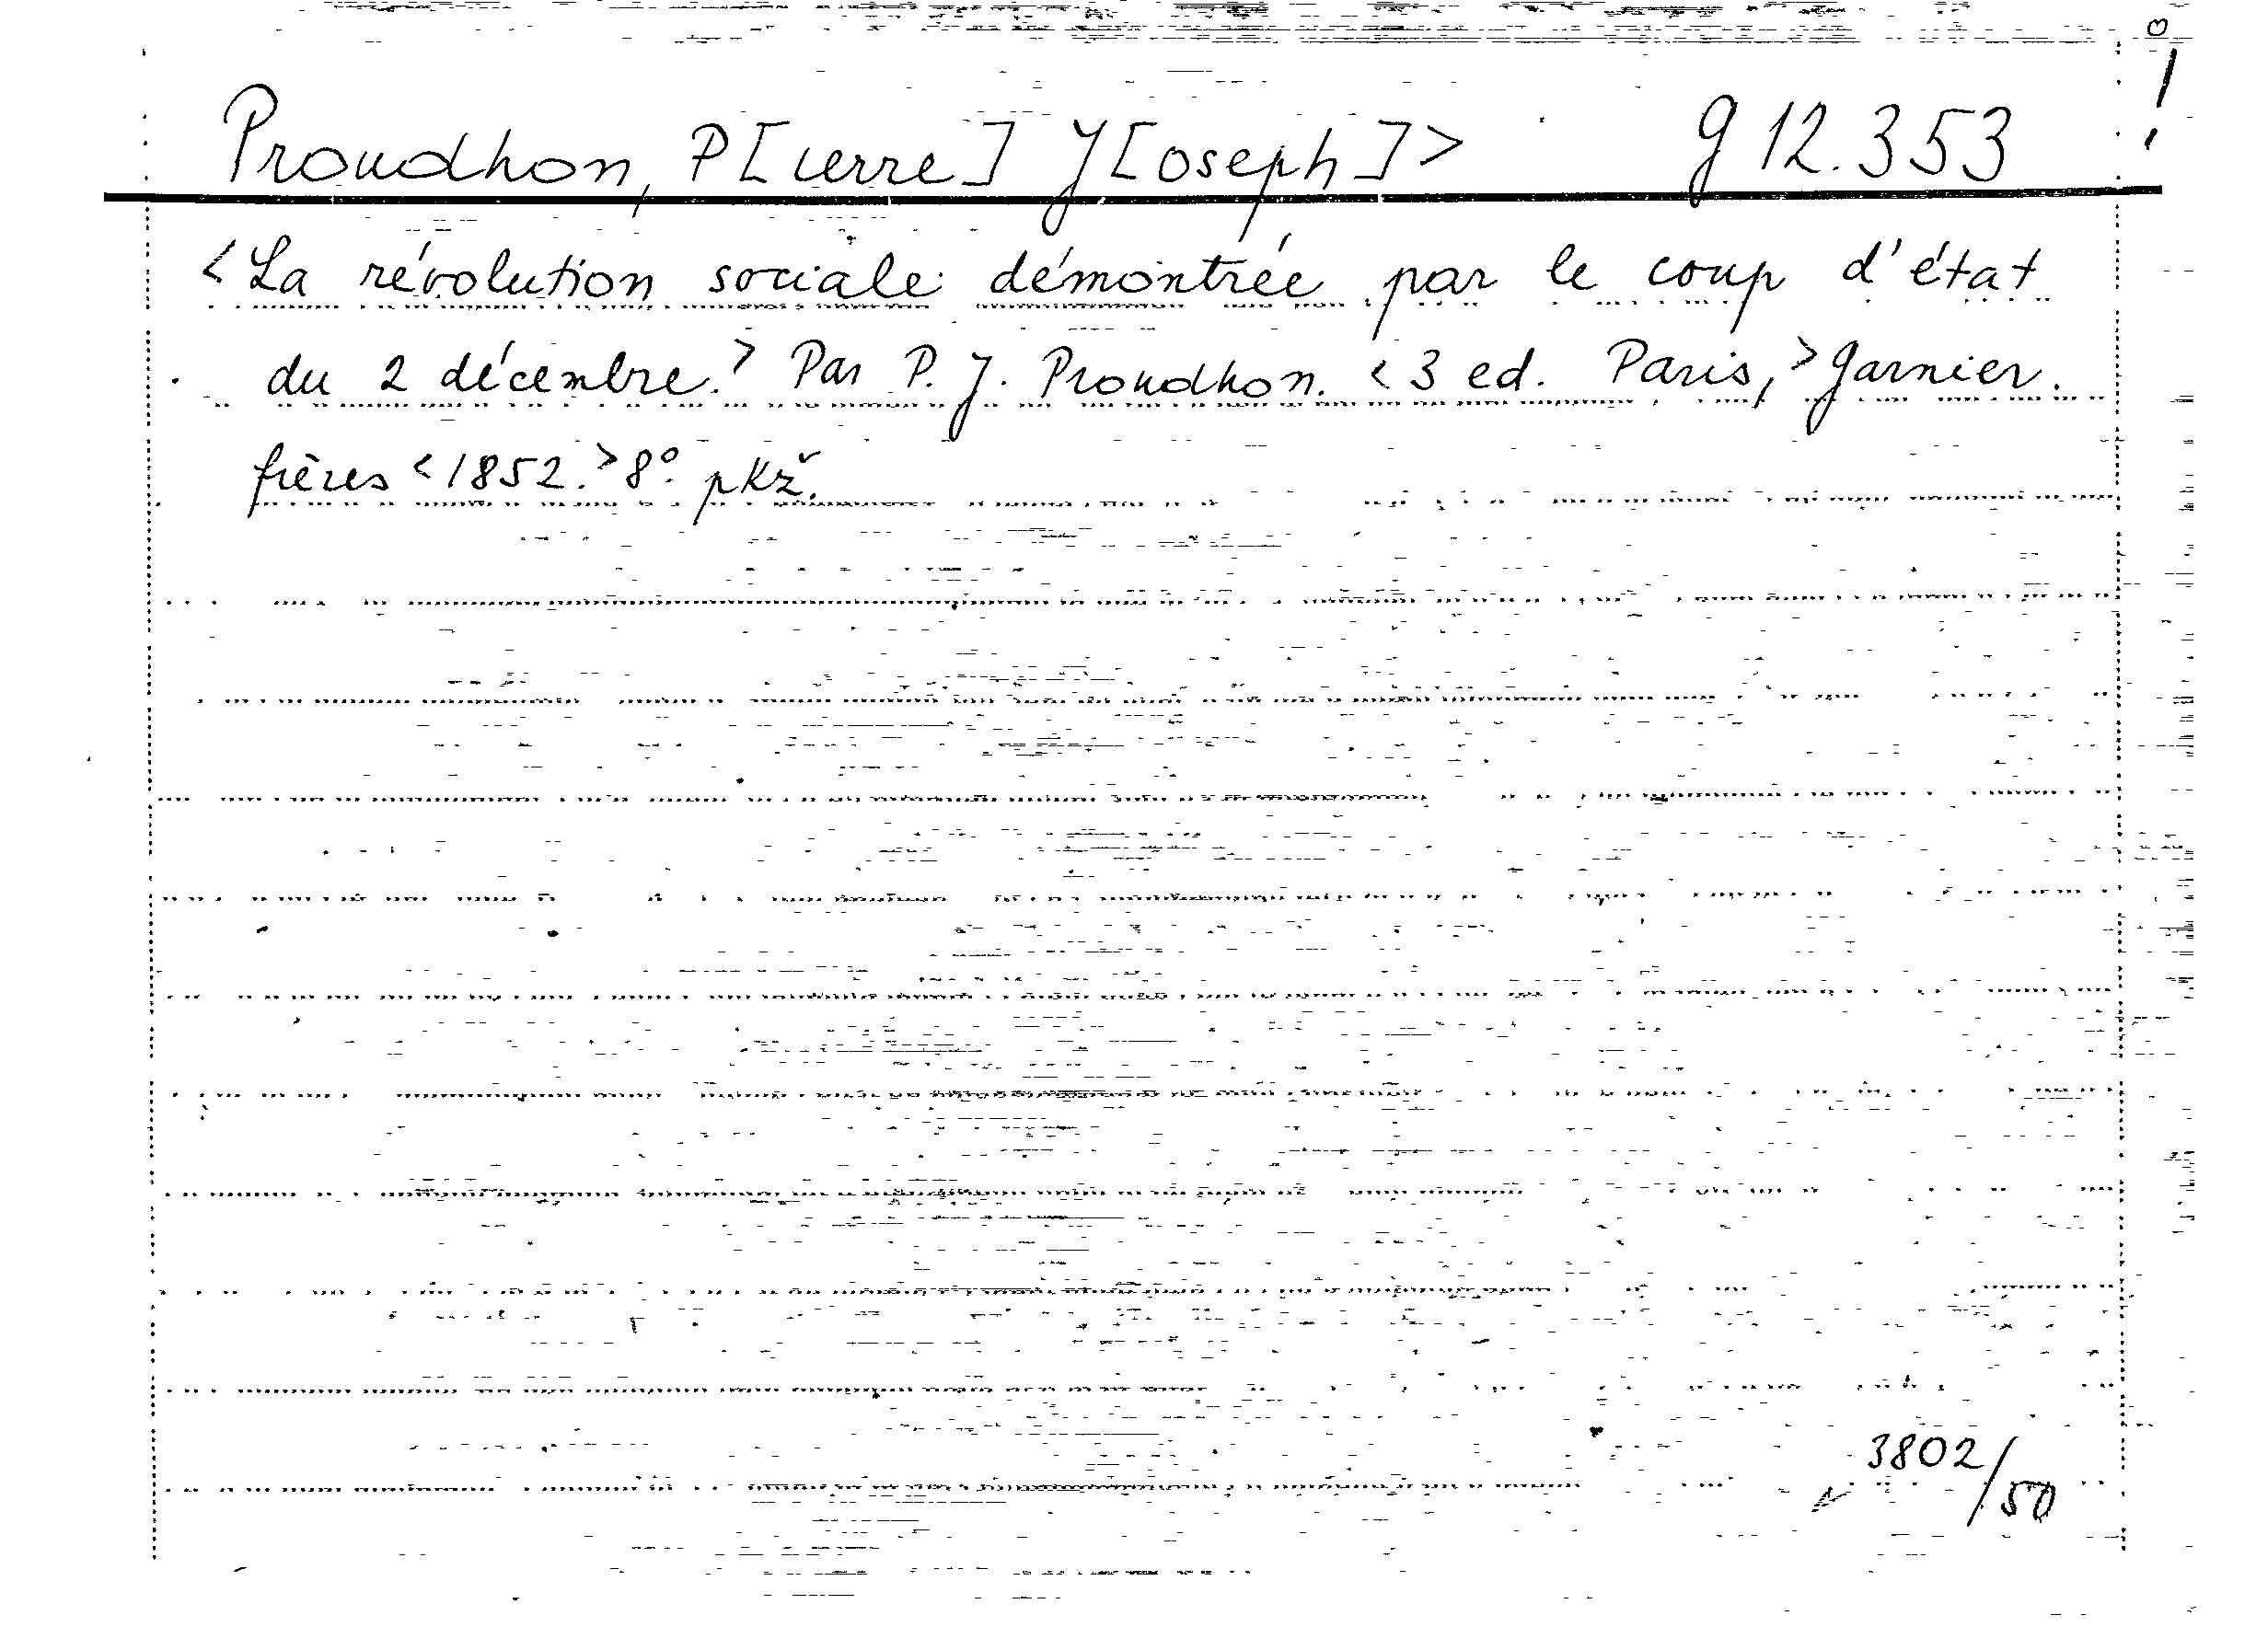 Proudhon, P[ierre] J[oseph]> g 12.353
<La révolution sociale démontrée par le coup d'état
du 2 décembre.> Par P. J. Proudhon. <3 ed. Paris,> Garnier
frères <1852.> 8°. pkž.
3802/50